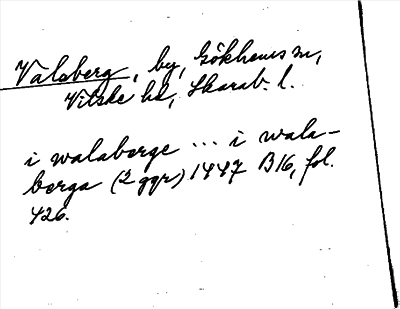 Valaberg, by, Gökhems sn,
Vilske hd, Skarab. l.
i walaberge ... i wala-
berga (2 ggr) 1447 B16, fol.
426.